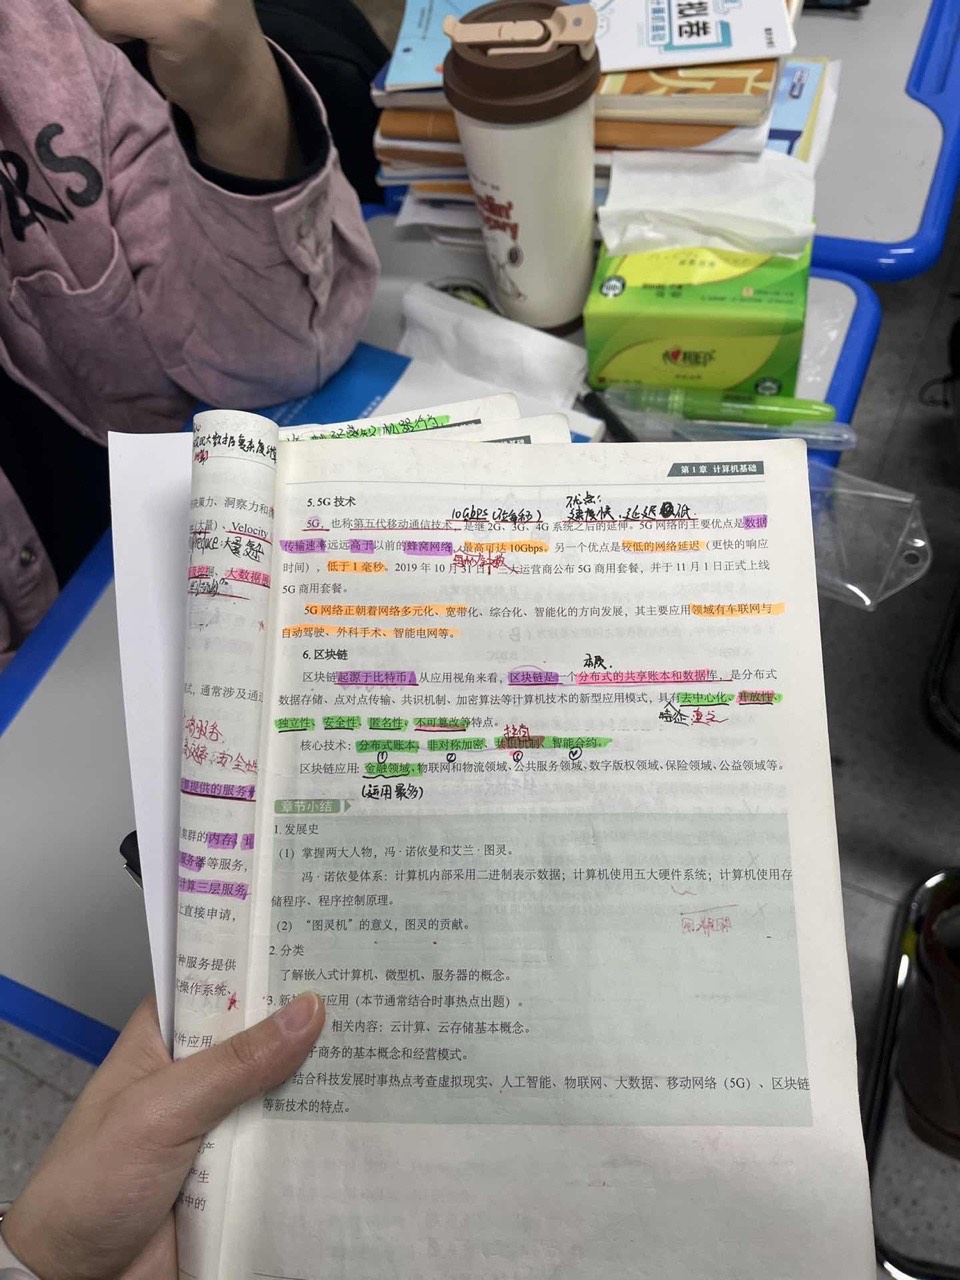 ARS
拟卷
心相印
第1章 计算机基础
5. 5G 技术
10Gbps
优点：
速度快，延迟低
5G，也称第五代移动通信技术，是继 2G、3G、4G 系统之后的延伸。5G 网络的主要优点是数据
传输速率远远高于以前的蜂窝网络，最高可达 10Gbps。另一个优点是较低的网络延迟（更快的响应
时间），低于 1 毫秒。2019 年 10 月 31 日，三大运营商公布 5G 商用套餐，并于 11 月 1 日正式上线
5G 商用套餐。
5G 网络正朝着网络多元化、宽带化、综合化、智能化的方向发展，其主要应用领域有车联网与
自动驾驶、外科手术、智能电网等。
6. 区块链
本质
区块链起源于比特币，从应用视角来看，区块链是一个分布式的共享账本和数据库，是分布式
数据存储、点对点传输、共识机制、加密算法等计算机技术的新型应用模式，具有去中心化、开放性、
特征
独立性、安全性、匿名性、不可篡改等特点。
核心技术：分布式账本、非对称加密、共识机制、智能合约。
① ② ④
区块链应用：金融领域、物联网和物流领域、公共服务领域、数字版权领域、保险领域、公益领域等。
(运用最多)
章节小结
1. 发展史
（1）掌握两大人物，冯·诺依曼和艾兰·图灵。
冯·诺依曼体系：计算机内部采用二进制表示数据；计算机使用五大硬件系统；计算机使用存
储程序、程序控制原理。
（2）“图灵机”的意义，图灵的贡献。
2. 分类
了解嵌入式计算机、微型机、服务器的概念。
3. 新 应用（本节通常结合时事热点出题）。
相关内容：云计算、云存储基本概念。
子商务的基本概念和经营模式。
结合科技发展时事热点考查虚拟现实、人工智能、物联网、大数据、移动网络（5G）、区块链
等新技术的特点。
决策力、洞察力和
大量）、Velocity
大数据
试，通常涉及通过
提供的服务
集群的内存、
服务器等服务，
计算三层服务
直接申请，
种服务提供
操作系统、
件应用
产
产生
中的